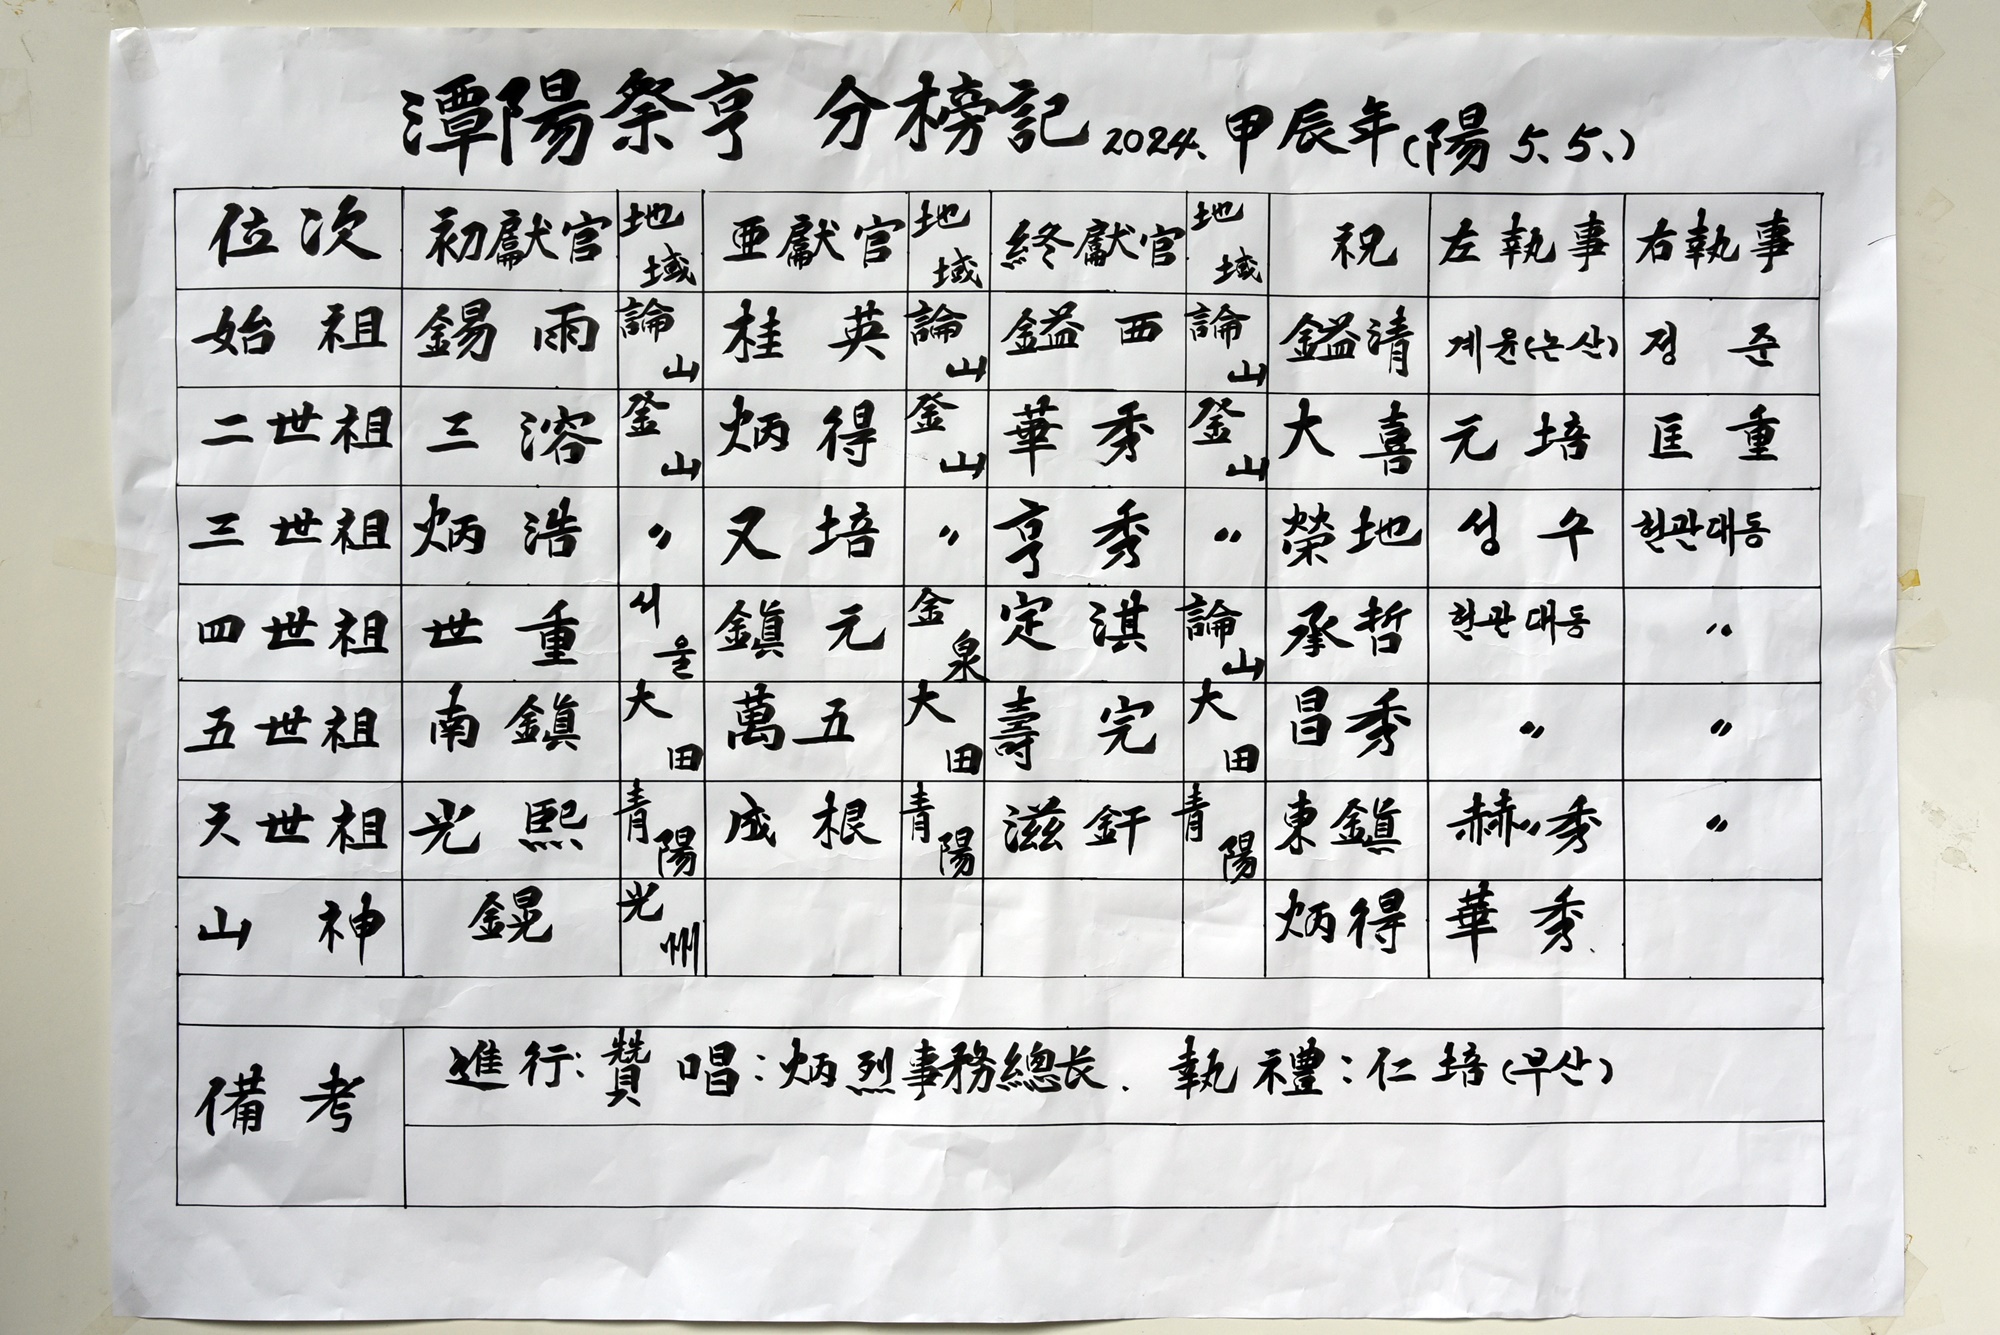 潭陽祭亨 分榜記 2024. 甲辰年(陽 5. 5.)
位次 初獻官 地域 亜獻官 地域 終獻官 地域 祝 左執事 右執事
始祖 錫雨 論山 桂英 論山 鎰西 論山 鎰清 계윤(논산) 정준
二世祖 三溶 釜山 炳得 釜山 華秀 釜山 大喜 元培 匡重
三世祖 炳浩 〃 又培 〃 亨秀 〃 榮地 성수 헌관대동
四世祖 世重 서울 鎭元 金泉 定淇 論山 承哲 헌관대동 〃
五世祖 南鎭 大田 萬五 大田 壽完 大田 昌秀 〃 〃
六世祖 光熙 青陽 成根 青陽 滋釬 青陽 東鎭 赫秀 〃
山神 鎤 光州 炳得 華秀
備考 進行: 贊唱: 炳烈事務總长. 執禮: 仁培(부산)